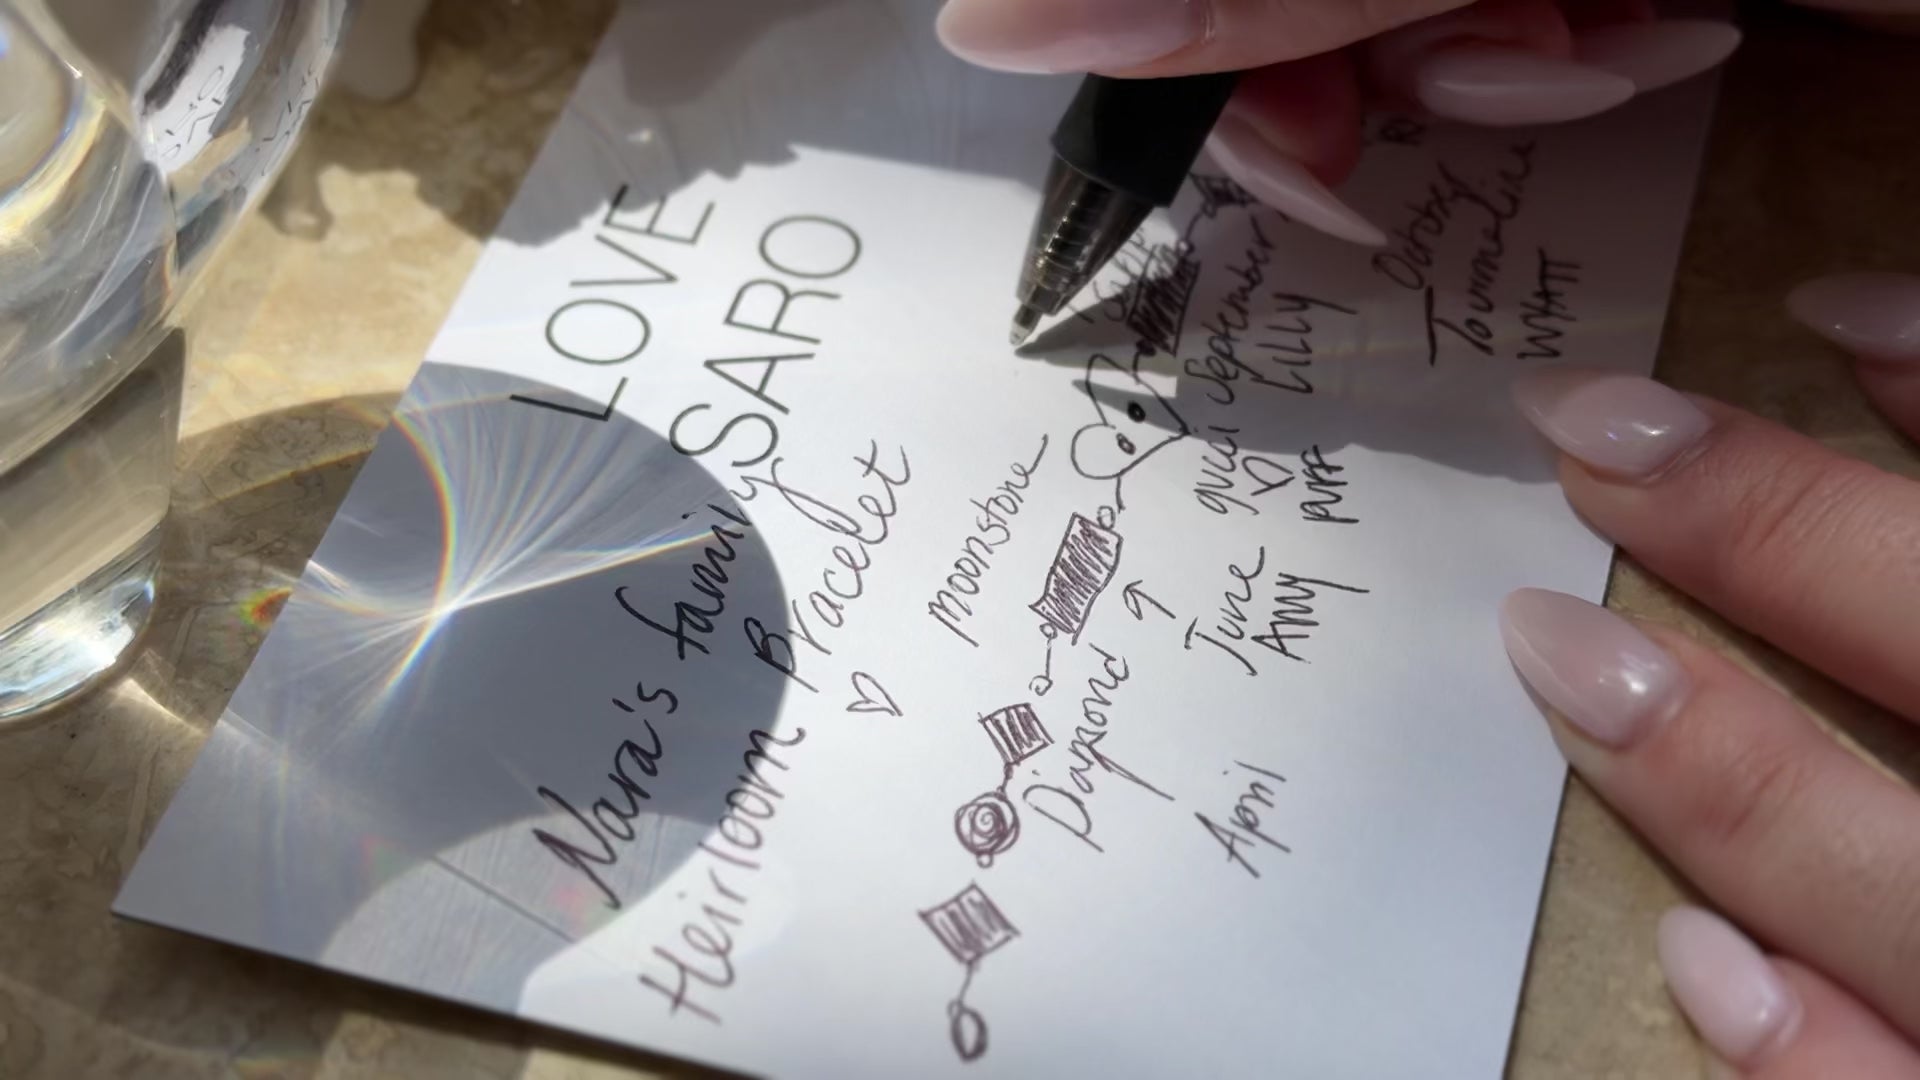 LOVE
SARO
Nara's family
Heirloom Bracelet
Moonstone
Diamond
April
June
AMY
September
LILLY
PUFF
October
Tourmaline
WYATT